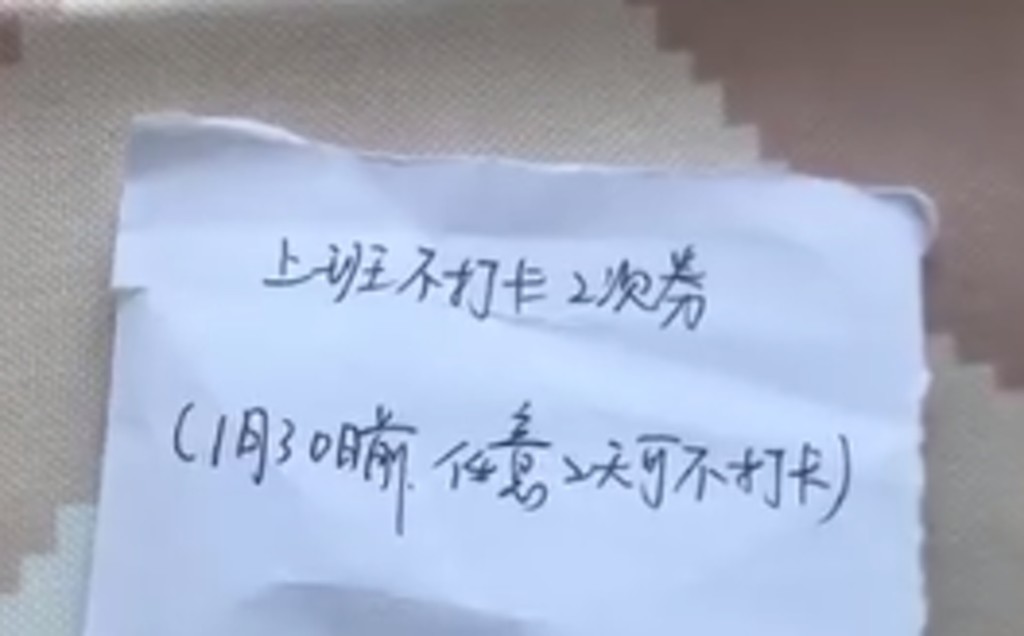 上班不打卡2次券
(1月30日前 任意2天可不打卡)